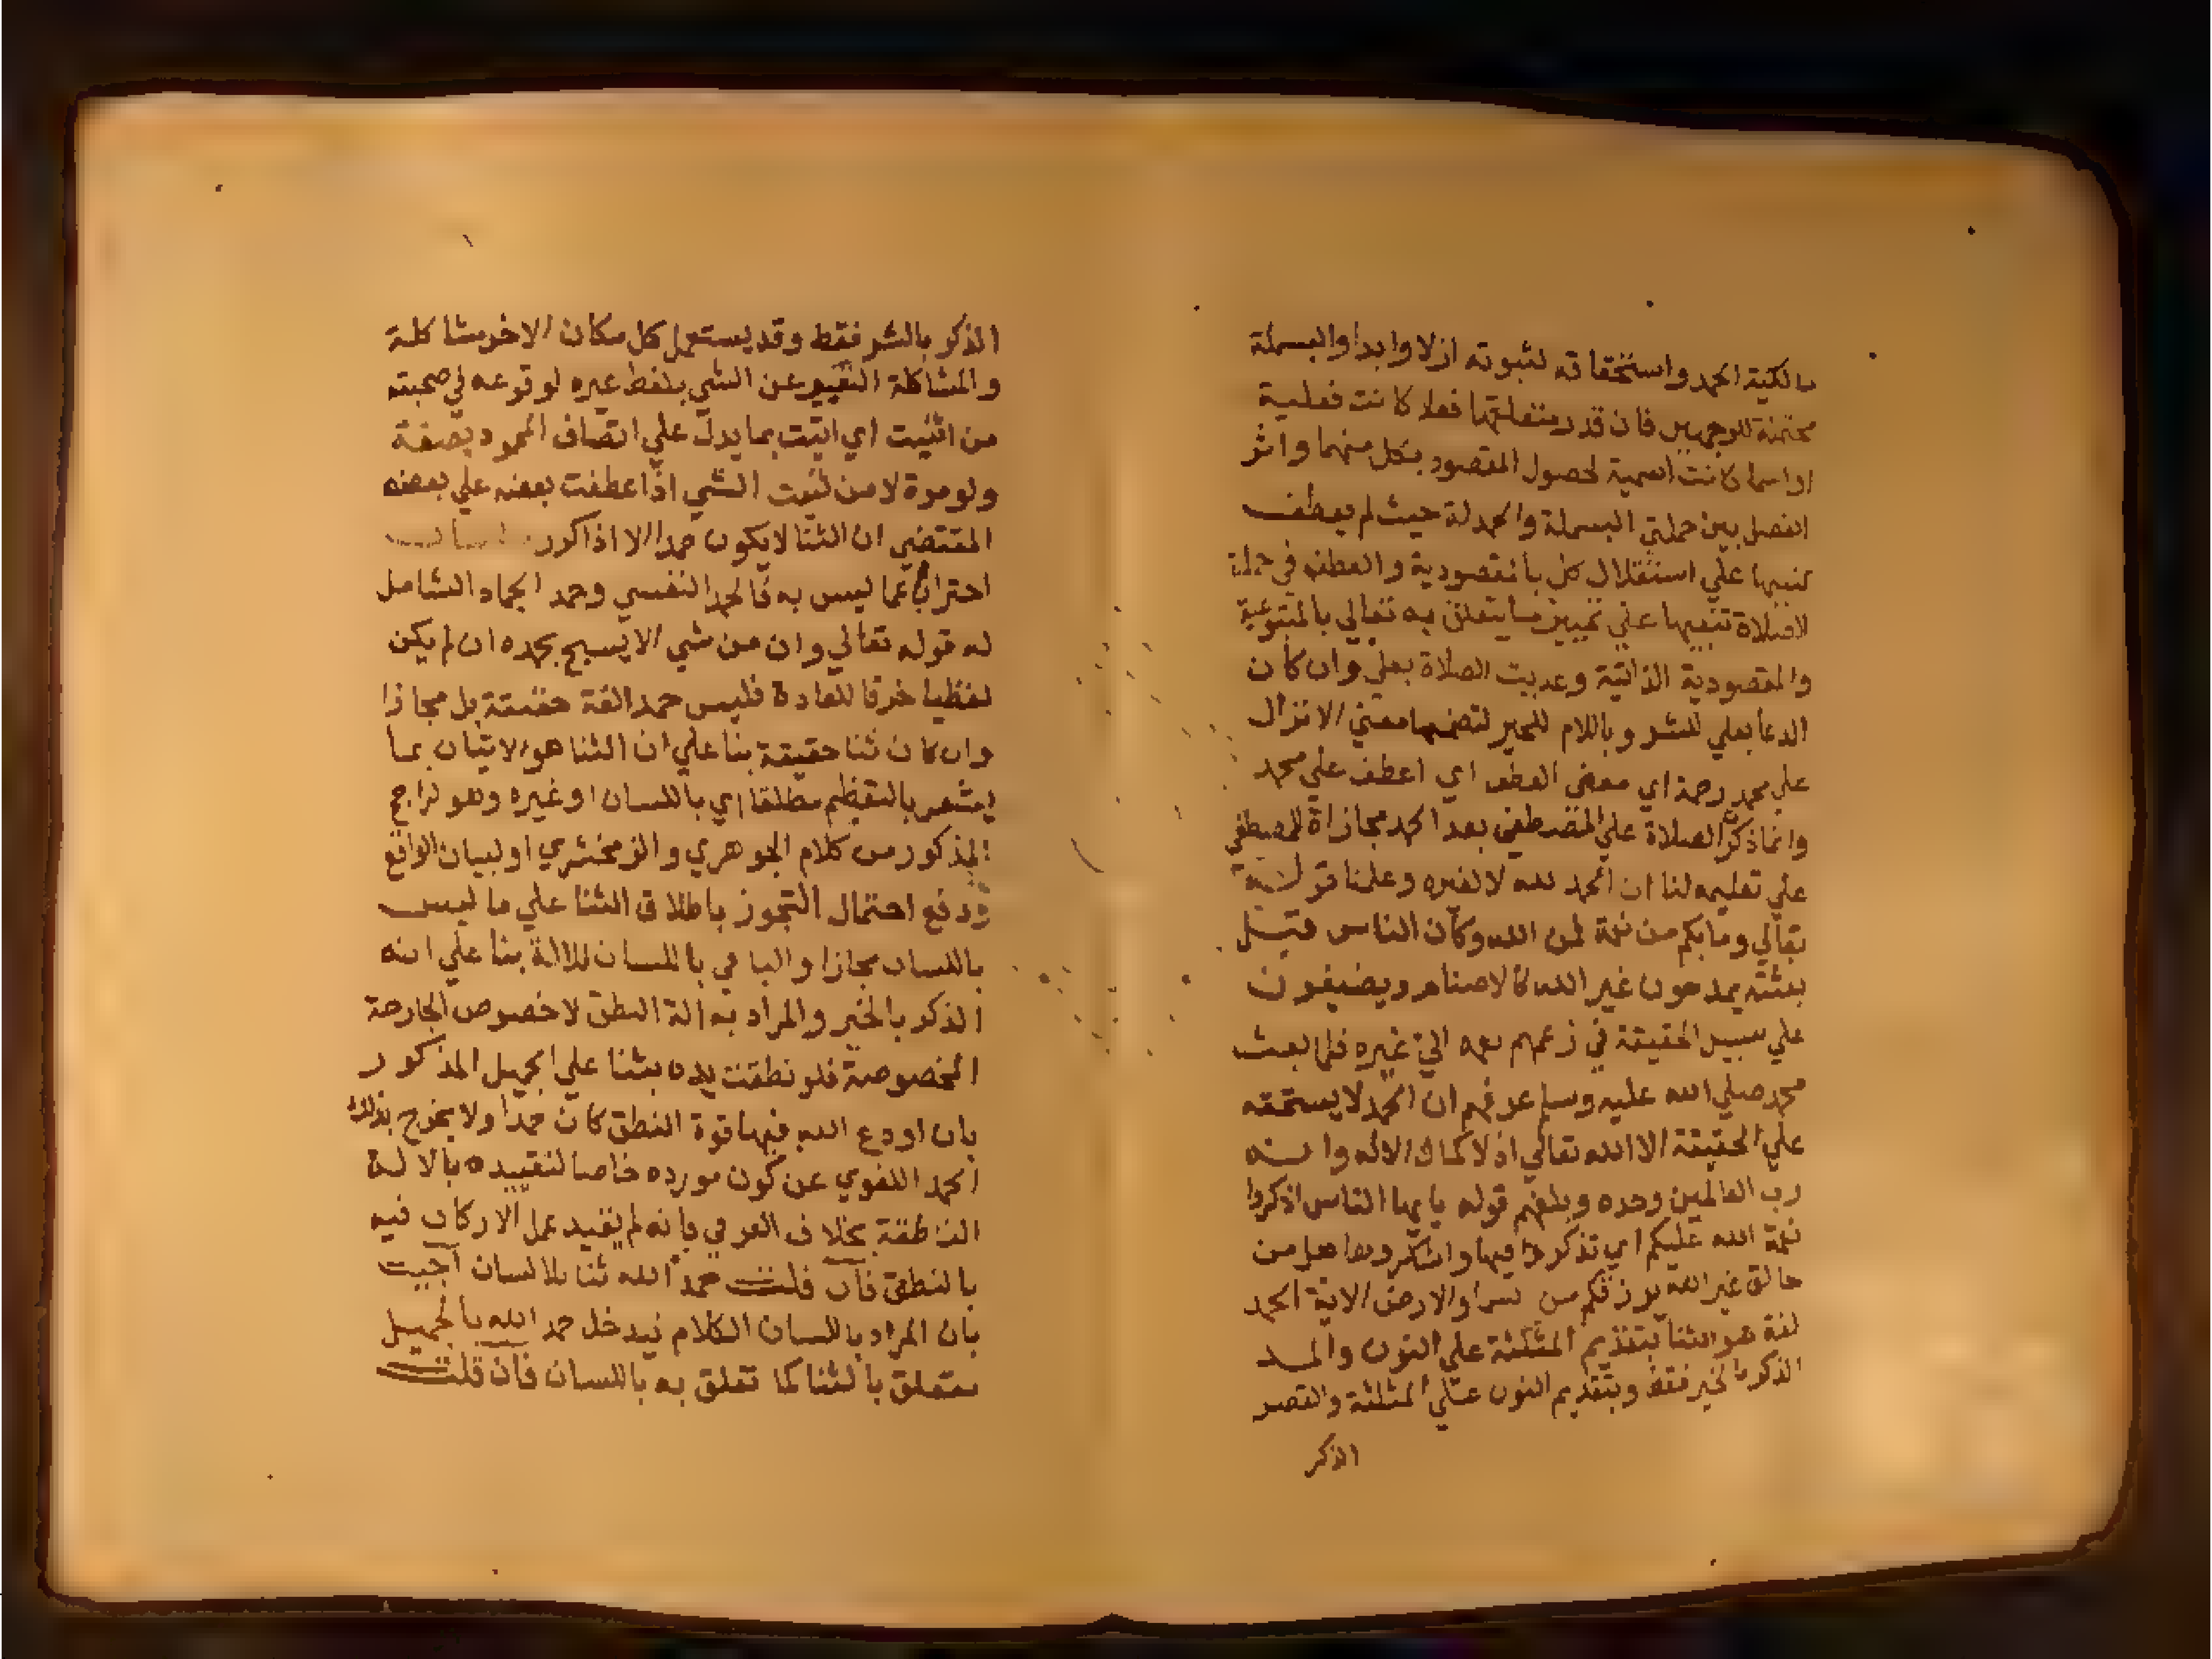 مالكية الحمد واستحقاقه لثبوته ازلا وابدا والبسملة
محتملة للوجهين فان قدر متعلقها فعلا كانت فعلية
او اسما كانت اسمية لحصول المقصود بكل منهما واثر
الفصل بين جملتي البسملة والحمدلة حيث لم يعطف
تنبيها علي استقلال كل بالمقصودية والعطف في جملة
الصلاة تنبيها علي تمييز ما يتعلق به تعالي بالمتبوعية
والمقصودية الذاتية وعديت الصلاة بعلي وان كان
الدعا بعلي للشر وباللام للخير لتضمنها معني الانزال
علي محمد رحمة اي معني العطف اي اعطف علي محمد
وانما ذكر الصلاة علي المصطفى بعد الحمد مجازاة للمصطفي
علي تعليمه لنا ان الحمد لله لا لغيره وعلمنا قوله
تعالي وما بكم من نعمة فمن الله وكان الناس قبل
بعثته يمدحون غير الله كالاصنام ويضيفون
علي سبيل الحقيقة في زعمهم نعمه الي غيره فلما بعث
محمد صلي الله عليه وسلم عرفهم ان الحمد لا يستحقه
علي الحقيقة الا الله تعالي اذ لا كمال الا له وانه
رب العالمين وحده وبلغهم قوله يايها الناس اذكروا
نعمة الله عليكم اي تذكروا فيها واشكروها هل من
خالق غير الله يرزقكم من السما والارض الاية الحمد
لغة هو الثنا بتقديم المثلثة علي النون والمد
الذكر بالخير فقط وبتقديم النون علي المثلثة والقصر
الذكر
الذكر بالشر فقط وقد يستعمل كل مكان الاخر مشاكلة
والمشاكلة التعبير عن الشي بلفظ غيره لوقوعه في صحبته
من اثنيت اي اتيت بما يدل علي اتصاف المحمود بصفة
ولو مرة لا من ثنيت الشي اذا عطفت بعضه علي بعضه
المقتضي ان الثنا لا يكون حمدا الا اذا كرر
احترازا عما ليس به كالحمد النفسي وحمد الجماد الشامل
له قوله تعالي وان من شي الا يسبح بحمده ان لم يكن
لفظيا خرقا للعادة فليس حمد الغة حقيقة بل مجازا
وان كان ثنا حقيقة بنا علي ان الثنا هو الاتيان بما
يشعر بالتعظيم مطلقا اي باللسان او غيره وهو الراجح
المذكور من كلام الجوهري والزمخشري او لبيان الواقع
ودفع احتمال التجوز باطلاق الثنا علي ما ليس
باللسان مجازا والبا في باللسان للالة بنا علي انه
الذكر بالخير والمراد به الة النطق لا خصوص الجارحة
المخصوصة فلو نطقت يده بثنا علي الجميل المذكور
بان اودع الله فيها قوة النطق كان حمدا ولا يخرج بذلك
الحمد اللغوي عن كون مورده خاصا لتقييده بالالة
الناطقة بخلاف العرفي فانه لم يقيد عمل الاركان فيه
بالنطق فان قلت حمد الله ثنا بلا لسان اجيب
بان المراد باللسان الكلام فيدخل حمد الله بالجميل
متعلق بالثنا كما تعلق به باللسان فان قلت